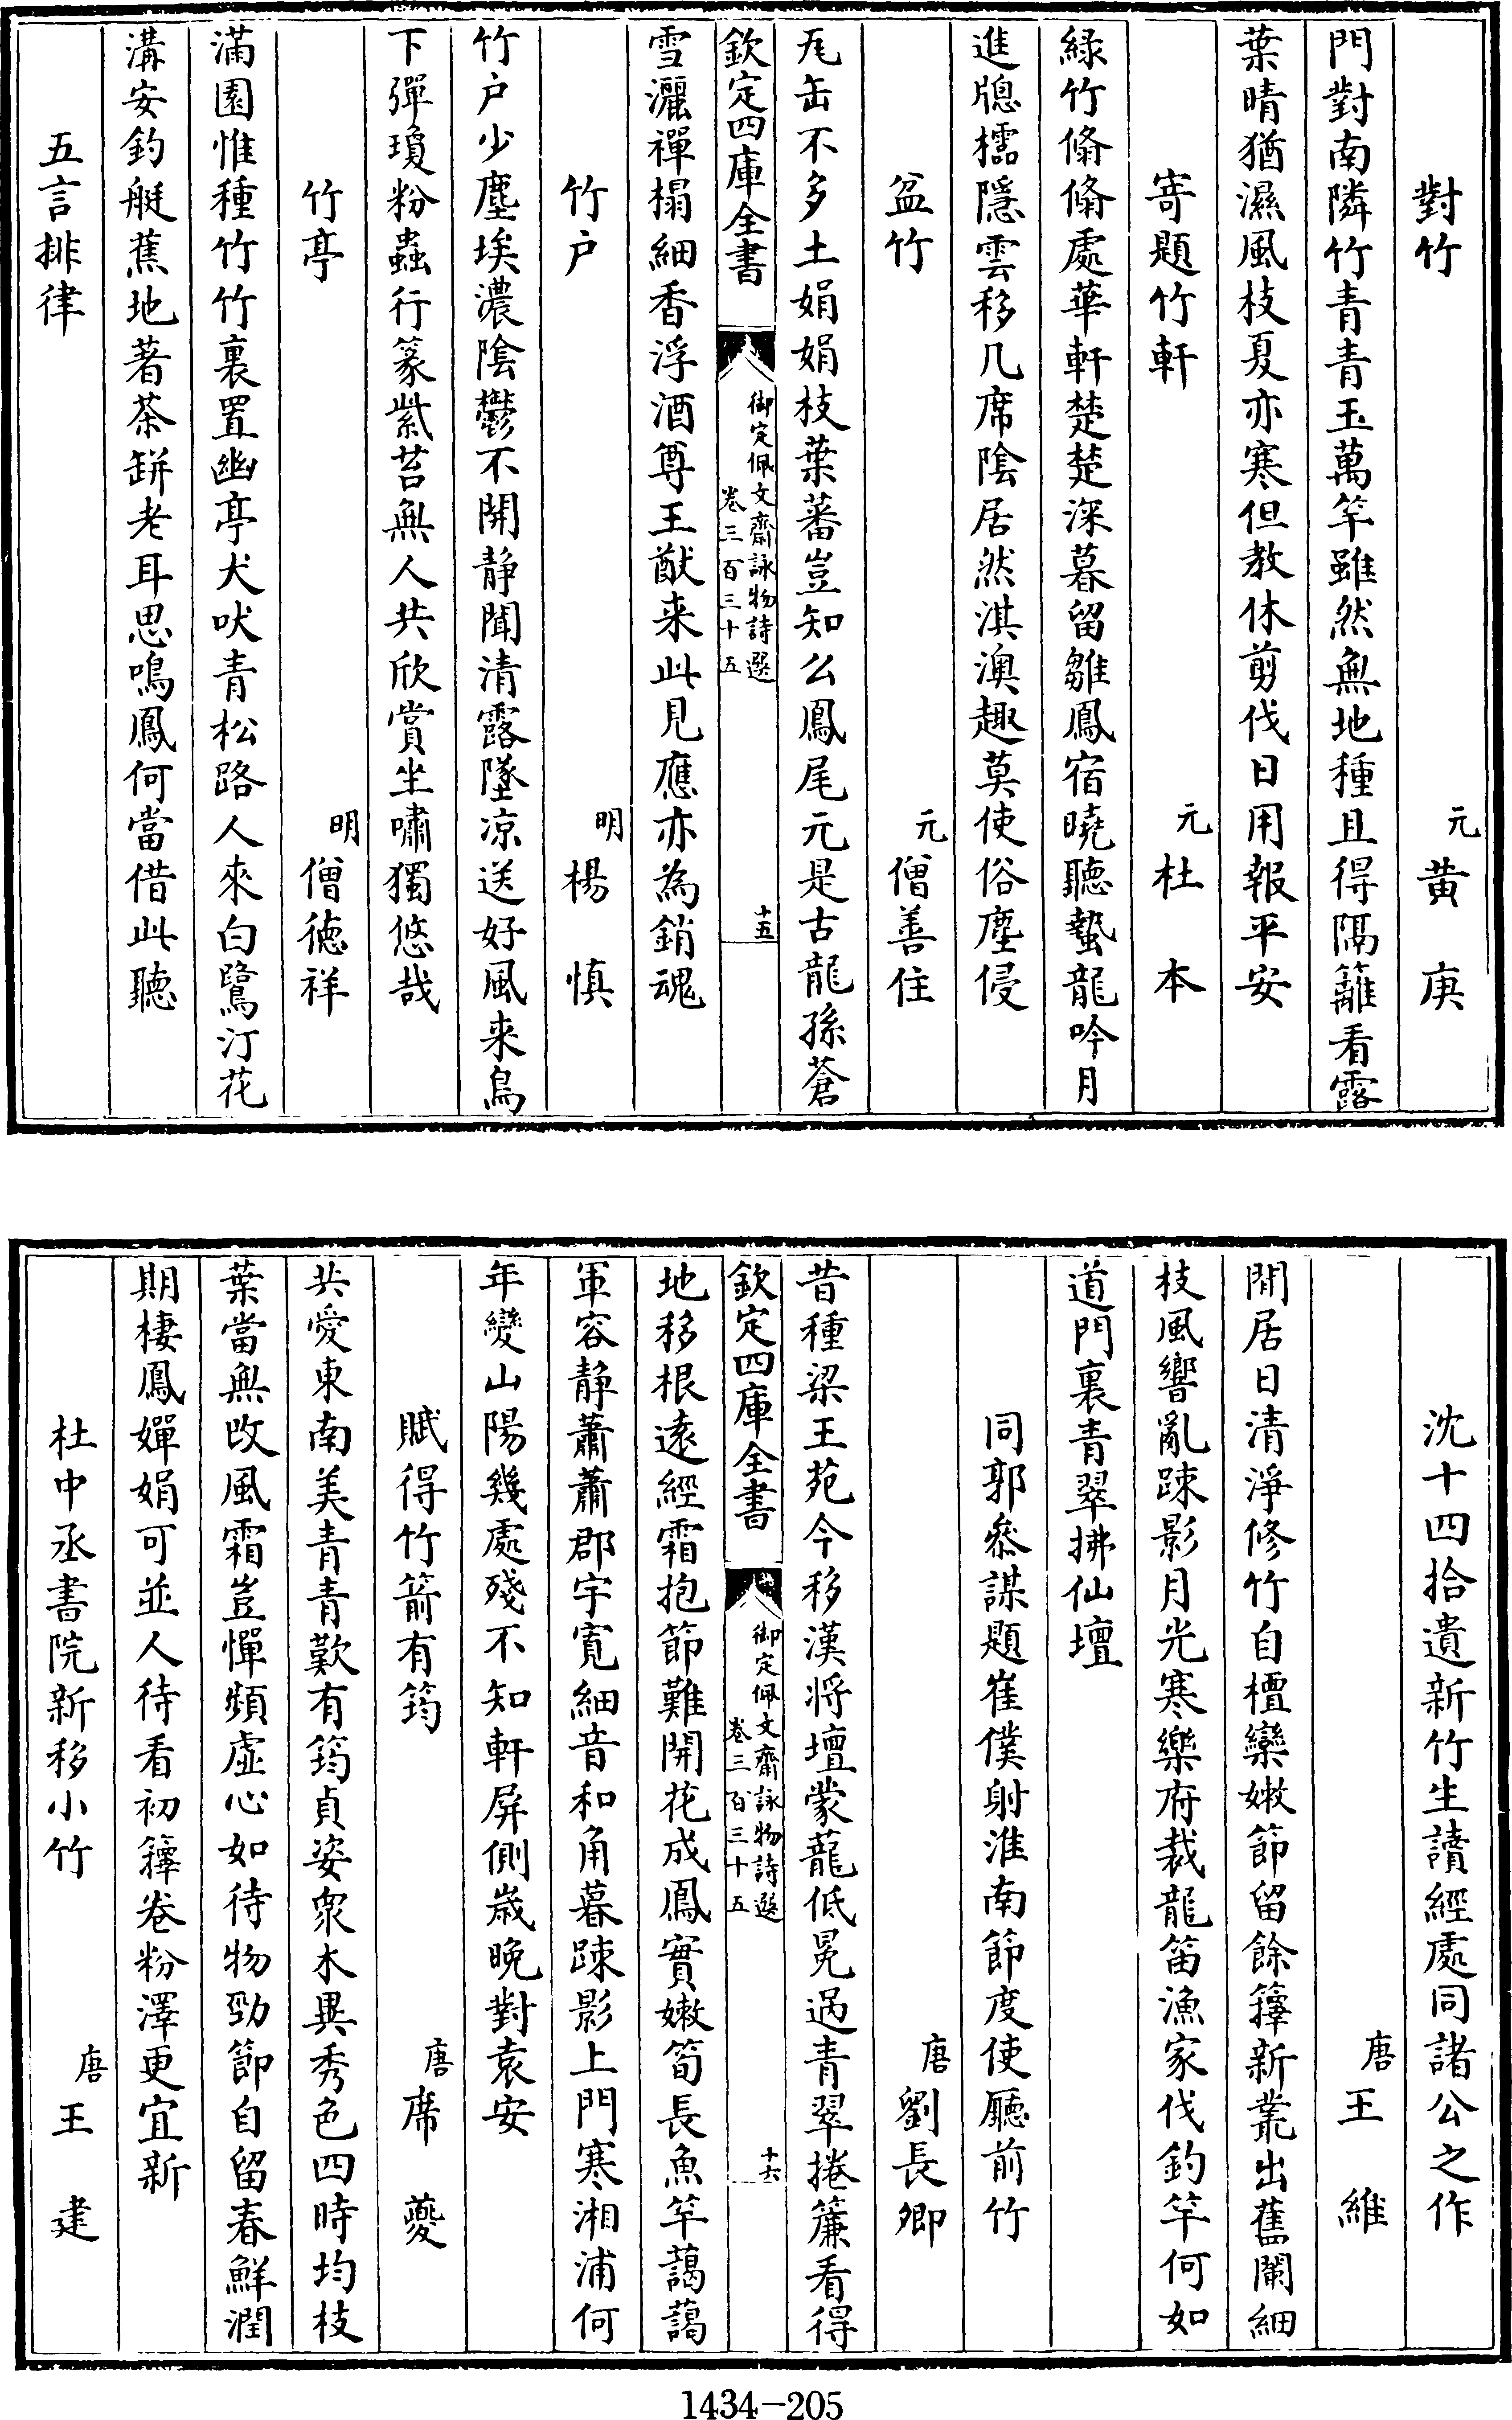 對竹
元黄庚
門對南隣竹青青玉萬竿雖然無地種且得隔籬看露
葉晴猶濕風枝夏亦寒但教休剪伐日用報平安
寄題竹軒
元杜本
緑竹翛翛處華軒楚楚深暮留雛鳳宿曉聽蟄龍吟月
進牕櫺隱雲移几席陰居然淇澳趣莫使俗塵侵
盆竹
元僧善住
瓦缶不多土娟娟枝葉蕃豈知么鳳尾元是古龍孫蒼
欽定四庫全書
御定佩文齋詠物詩選
卷三百三十五
十五
雪灑禪榻細香浮酒尊王猷来此見應亦為銷魂
竹户
明楊慎
竹户少塵埃濃陰鬱不開静聞清露墜凉送好風来鳥
下彈瓊粉蟲行篆紫苔無人共欣賞坐嘯獨悠哉
竹亭
明僧德祥
滿園惟種竹竹裏置幽亭犬吠青松路人來白鷺汀花
溝安釣艇蕉地著茶缾老耳思鳴鳳何當借此聽
五言排律
沈十四拾遺新竹生讀經處同諸公之作
唐王維
閒居日清淨修竹自檀欒嫩節留餘籜新叢出舊闌細
枝風響亂疎影月光寒樂府裁龍笛漁家伐釣竿何如
道門裏青翠拂仙壇
同郭參謀題崔僕射淮南節度使廳前竹
唐劉長卿
昔種梁王苑今移漢將壇蒙蘢低冕過青翠捲簾看得
欽定四庫全書
御定佩文齋詠物詩選
卷三百三十五
十六
地移根遠經霜抱節難開花成鳳實嫩筍長魚竿藹藹
軍容静蕭蕭郡宇寛細音和角暮疎影上門寒湘浦何
年變山陽幾處殘不知軒屏側歳晚對袁安
賦得竹箭有筠
唐席夔
共愛東南美青青歎有筠貞姿衆木異秀色四時均枝
葉當無改風霜豈憚頻虚心如待物勁節自留春鮮潤
期棲鳳嬋娟可並人待看初籜卷粉澤更宜新
杜中丞書院新移小竹
唐王建
1434-205